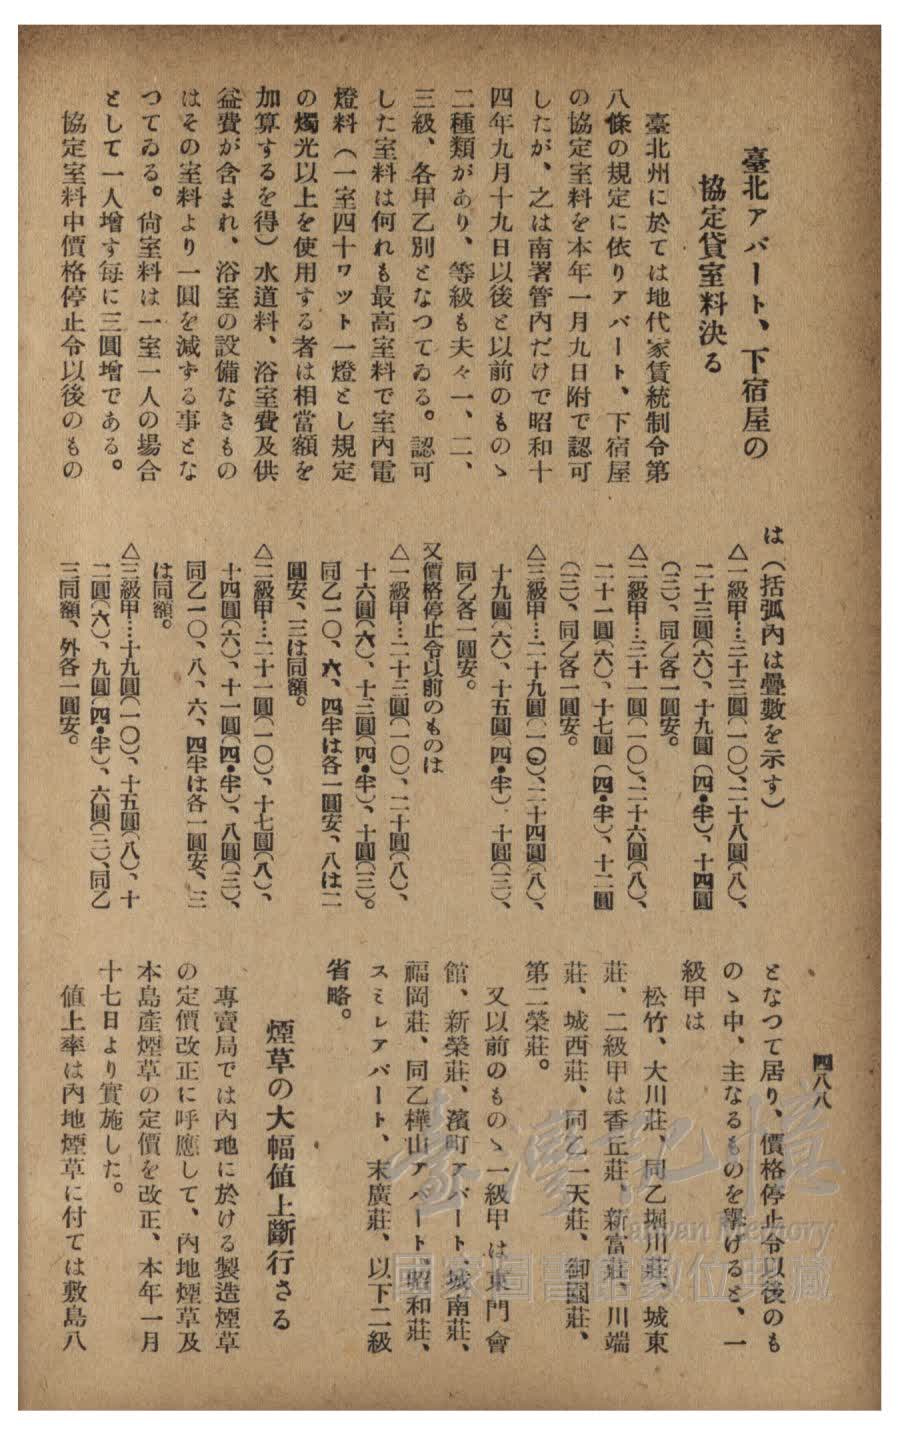 四八八
臺北アパート、下宿屋の
協定貸室料決る
臺北州に於ては地代家賃統制令第
八條の規定に依りアパート、下宿屋
の協定室料を本年一月九日附で認可
したが、之は南署管內だけで昭和十
四年九月十九日以後と以前のものゝ
二種類があり、等級も夫々一、二、
三級、各甲乙別となつてゐる。認可
した室料は何れも最高室料で室內電
燈料（一室四十ワット一燈とし規定
の燭光以上を使用する者は相當額を
加算するを得）水道料、浴室費及供
益費が含まれ、浴室の設備なきもの
はその室料より一圓を減ずる事とな
つてゐる。尙室料は一室一人の場合
として一人增す每に三圓增である。
協定室料中價格停止令以後のもの
は（括弧內は疊數を示す）
△一級甲…三十三圓（一〇）、二十八圓（八）、
二十三圓（六）、十九圓（四•半）、十四圓
（三）、同乙各一圓安。
△二級甲…三十一圓（一〇）、二十六圓（八）、
二十一圓（六）、十七圓（四•半）、十二圓
（三）、同乙各一圓安。
△三級甲…二十九圓（一〇）、二十四圓（八）、
十九圓（六）、十五圓（四•半）、十圓（三）、
同乙各一圓安。
又價格停止令以前のものは
△一級甲…二十三圓（一〇）、二十圓（八）、
十六圓（六）、十三圓（四•半）、十圓（三）。
同乙一〇、六、四半は各一圓安、八は二
圓安、三は同額。
△二級甲…二十一圓（一〇）、十七圓（八）、
十四圓（六）、十一圓（四•半）、八圓（三）、
同乙一〇、八、六、四半は各一圓安、三
は同額。
△三級甲…十九圓（一〇）、十五圓（八）、十
二圓（六）、九圓（四•半）、六圓（三）、同乙
三同額、外各一圓安。
となつて居り、價格停止令以後のも
のゝ中、主なるものを擧げると、一
級甲は
松竹、大川莊、同乙堀川莊、城東
莊、二級甲は香丘莊、新富莊、川端
莊、城西莊、同乙一天莊、御園莊、
第二榮莊。
又以前のものゝ一級甲は東門會
館、新榮莊、濱町アパート、城南莊、
福岡莊、同乙樺山アパート、昭和莊、
スミレアパート、末廣莊、以下二級
省略。
煙草の大幅値上斷行さる
專賣局では內地に於ける製造煙草
の定價改正に呼應して、內地煙草及
本島產煙草の定價を改正、本年一月
十七日より實施した。
値上率は內地煙草に付ては敷島八
臺灣記憶
Taiwan Memory
國家圖書館數位典藏